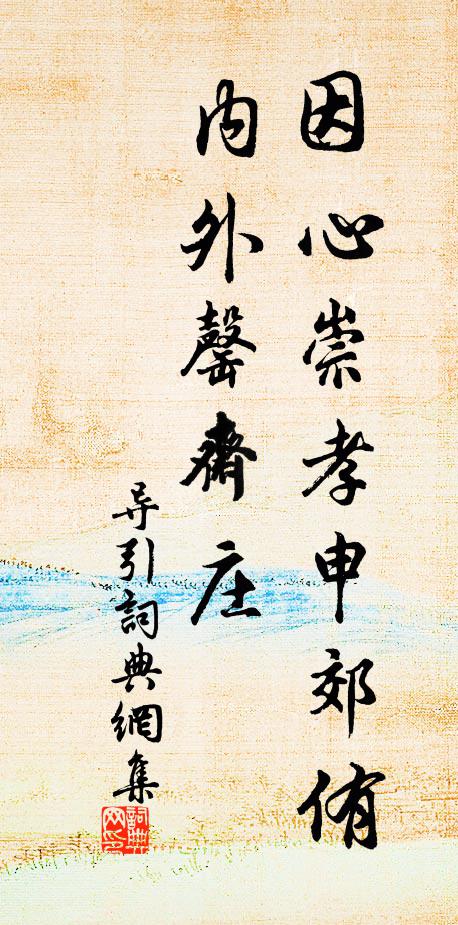 因心崇孝申郊侑
内外罄齋庄
导引詞典網集
詞典網印